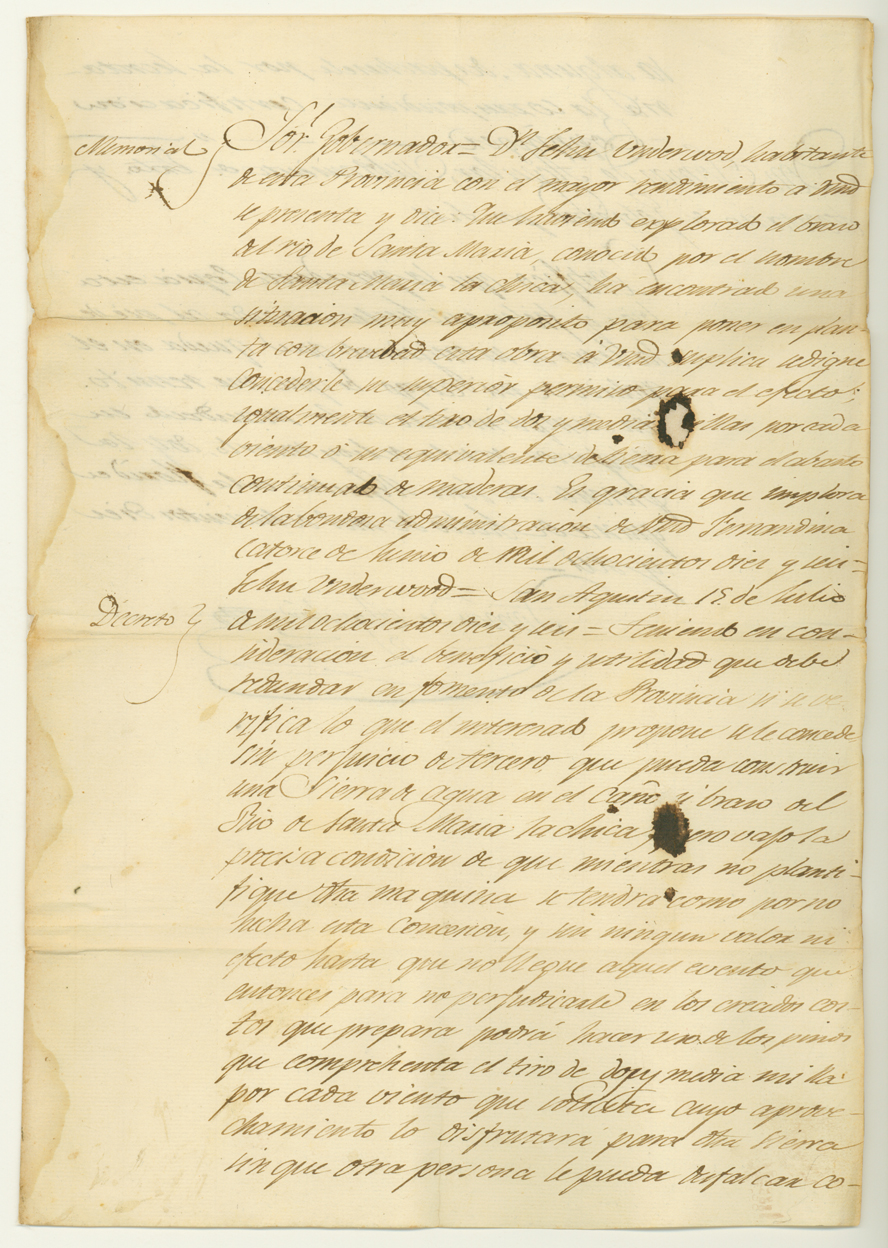 Memorial
Sõr. Gobernador = Dn. Jehu Underwod, habitante
de esta Provincia con el mayor rendimiento a Vmd
se presenta y dice: Que haviendo explorado el brazo
del rio de Santa Maria, conocido por el nombre
de Santa Maria la chica, ha encontrado una
situacion muy aproposito para poner en plan-
ta con brevedad esta obra á Vmd suplica se digne
concederle su superior permiso para el efecto;
igualmente el tiro de dos y media millas por cada
viento ó su equivalente de tierra para el abasto
continuado de maderas. Es gracia que implora
de la bondosa administracion de Vmd Fernandina
catorce de Junio de mil ochocientos diez y seis =
Jehu Underwood = San Agustin 15. de Julio
Decreto
de mil ochocientos diez y seis = Teniendo en con-
sideracion el beneficio y utilidad que debe
redundar en fomento de la Provincia si se ve-
rifica lo que el interesado propone se le concede
sin perjuicio de tercero, que pueda construir
una Sierra de agua en el Caño ó brazo del
Rio de Santa Maria la chica, pero vajo la
precisa condicion de que mientras no planti-
fique dha maquina se tendra como por no
hecha esta Concesion, y sin ningun valor ni
efecto hasta que no llegue aquel evento que
entonces para no perjudicarle en los creidos cos-
tos que prepara podrá hacer uso de los pinos
que comprehenta el tiro de dos y media milla
por cada viento que solicita cuyo aprove-
chamiento lo disfrutará para dha Sierra
sin que otra persona le pueda desfalcar co-